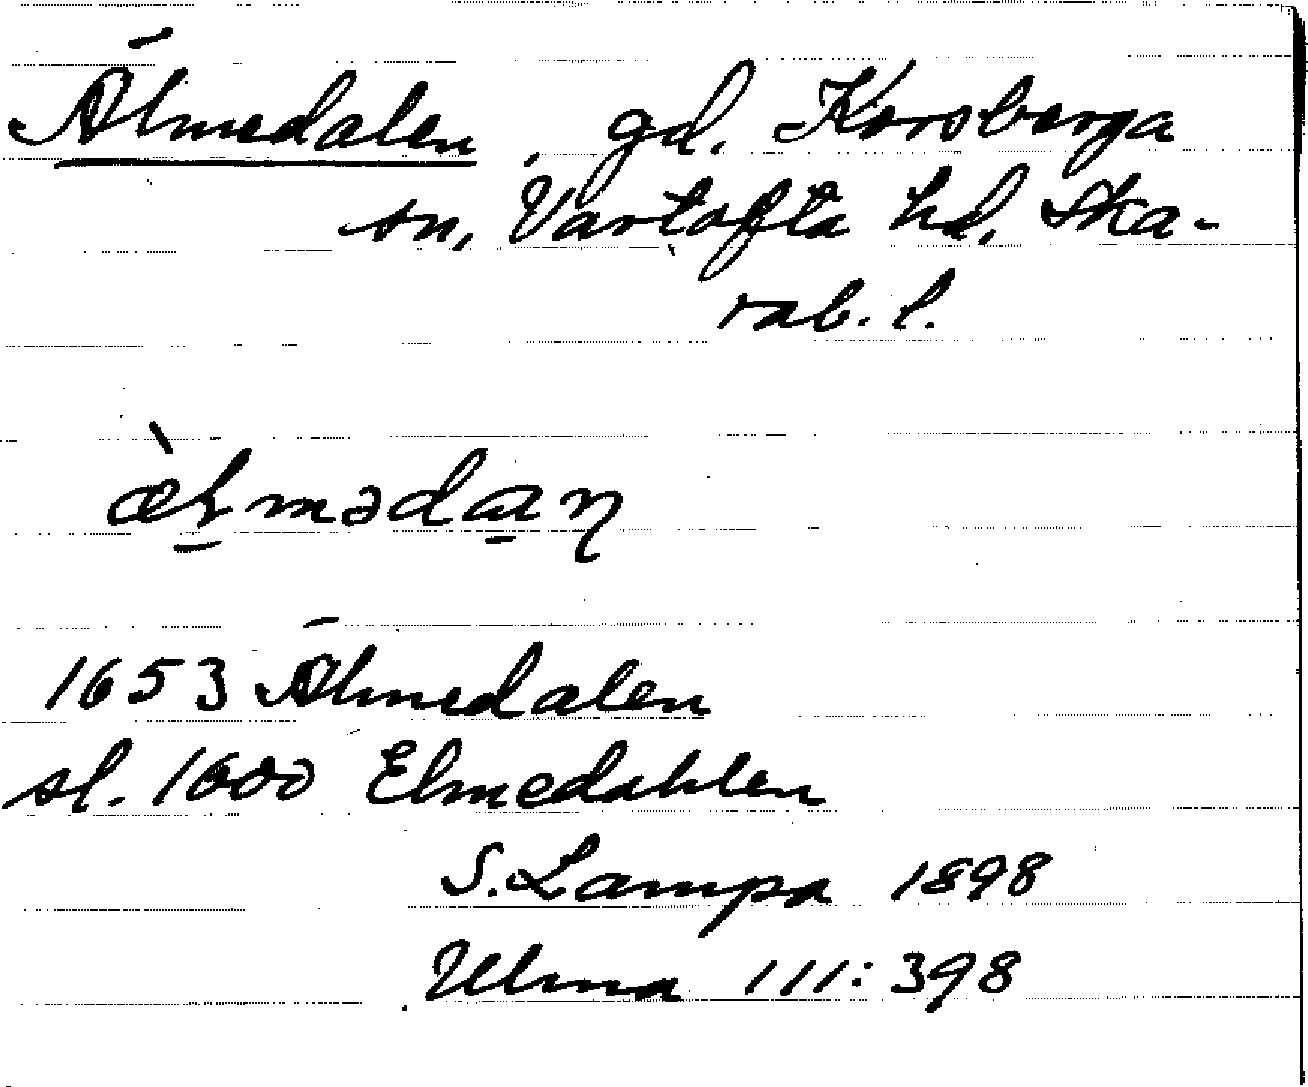 Älmedalen, gd. Korsberga
sn, Vartofta hd, Ska-
rab. l.
æ̀ḷməda̱ɳ
1653 Älmedalen
sl. 1600 Elmedahlen
S. Lampa 1898
Ulma 111:398